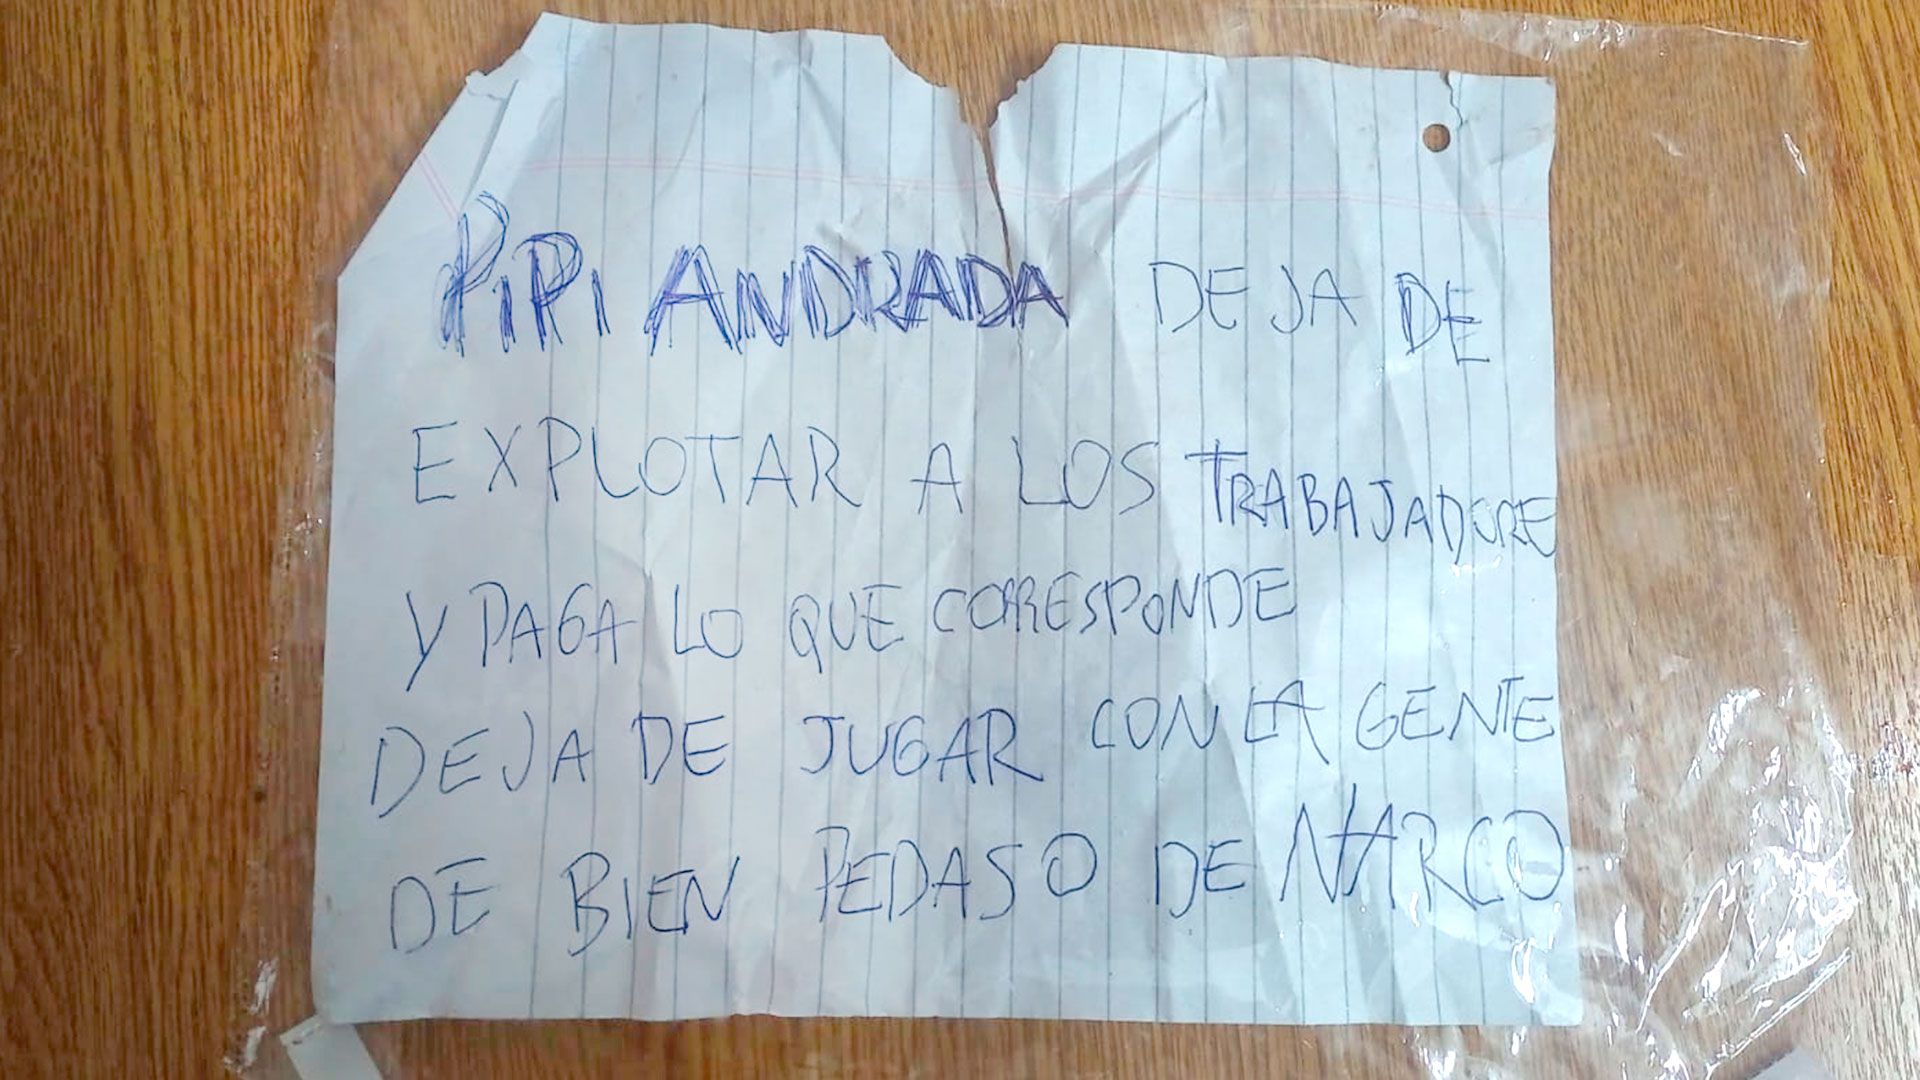 PiPi ANDRADA DEJA DE
EXPLOTAR A LOS TRABAJADORE
Y PAGA LO QUE CORRESPONDE
DEJA DE JUGAR CON LA GENTE
DE BIEN PEDASO DE NARCO